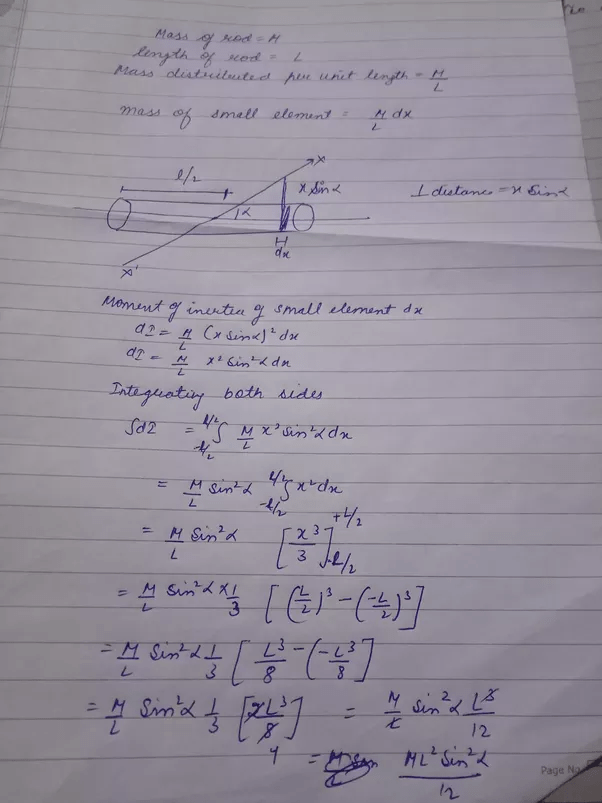 Mass of rod = M
length of rod = L
Mass distributed per unit length = M/L
mass of small element = M/L dx
l/2
X
x Sinα
⊥ distance = x Sinα
α
dx
X'
Moment of inertia of small element dx
dI = M/L (x Sinα)² dx
dI = M/L x² Sin²α dx
Integrating both sides
∫dI = ∫_{-L/2}^{L/2} M/L x² Sin²α dx
= M/L Sin²α ∫_{-L/2}^{L/2} x² dx
= M/L Sin²α [x³/3]_{-L/2}^{+L/2}
= M/L Sin²α × 1/3 [(L/2)³ − (−L/2)³]
= M/L Sin²α 1/3 [L³/8 − (−L³/8)]
= M/L Sin²α 1/3 [2L³/8] = M/L Sin²α L³/12
4
= ML² Sin²α/12
Page No.